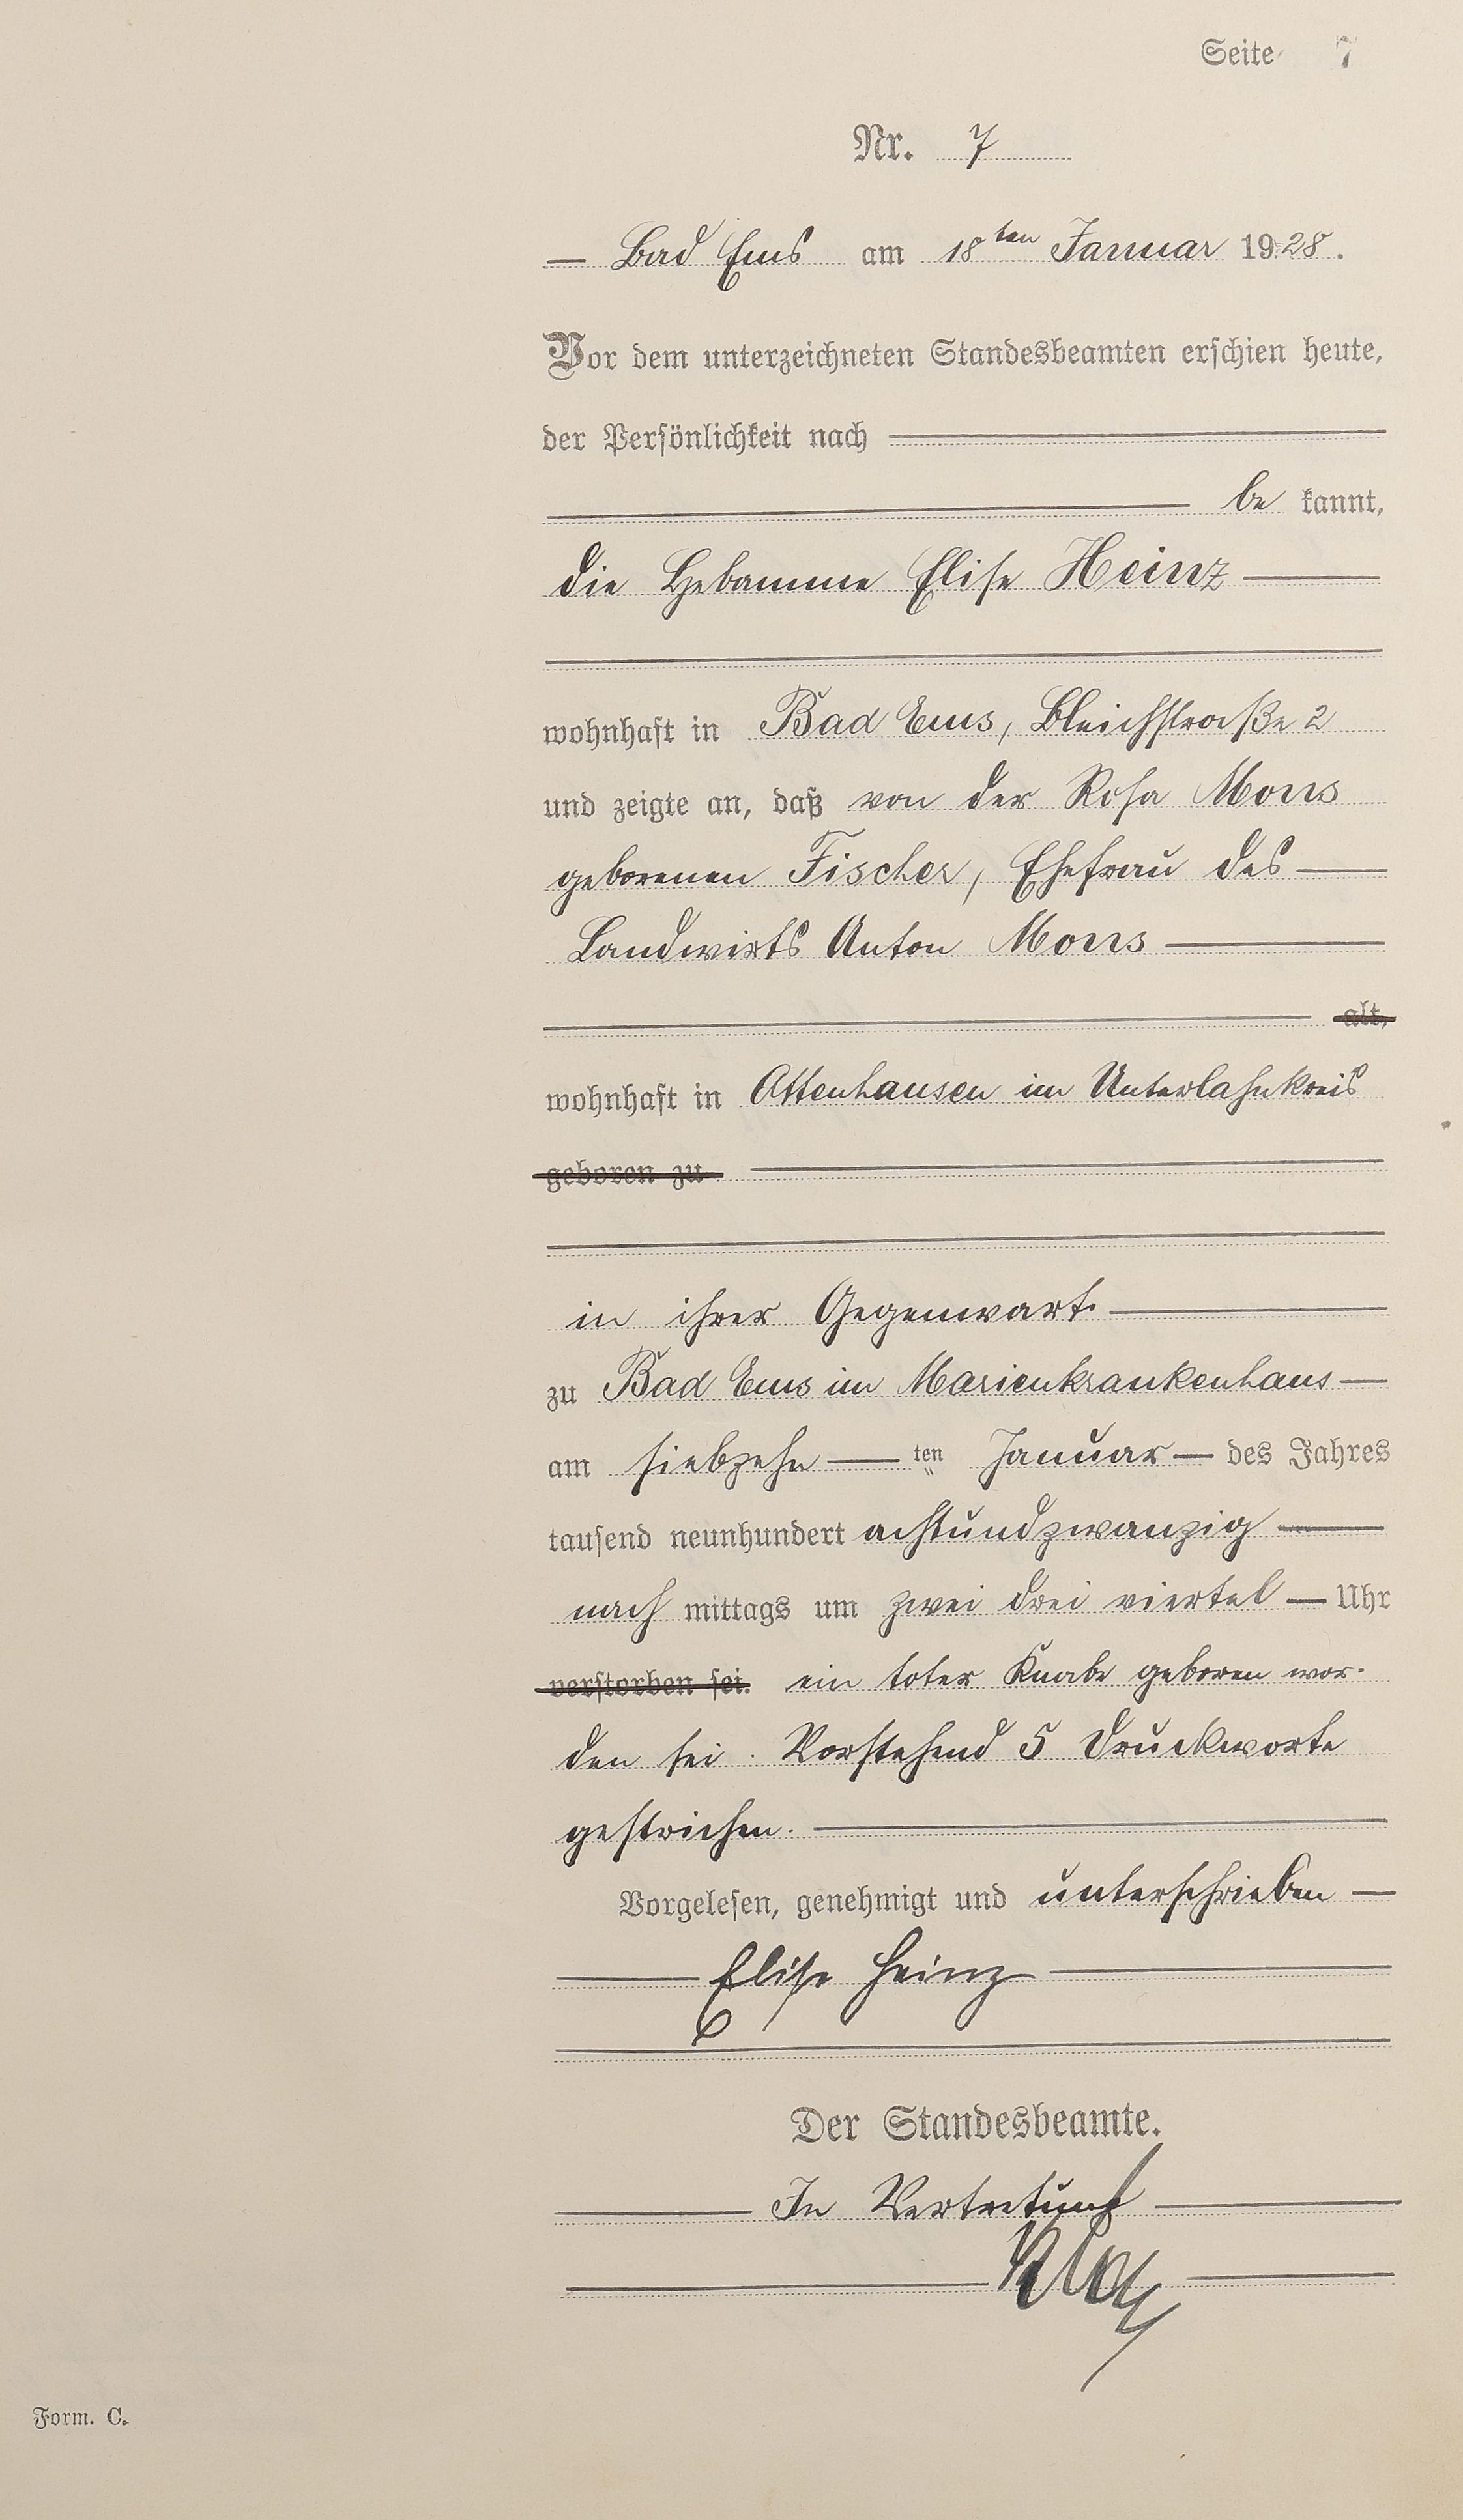 Seite 7
Nr. 7
— Bad Ems am 18ten Januar 1928.
Vor dem unterzeichneten Standesbeamten erschien heute,
der Persönlichkeit nach
be kannt,
die Hebamme Elise Heinz —
wohnhaft in Bad Ems, Bleichstraße 2
und zeigte an, daß von der Rosa Mons
geborenen Fischer, Ehefrau des —
Landwirts Anton Mons —
alt,
wohnhaft in Attenhausen im Unterlahnkreis
geboren zu
in ihrer Gegenwart. —
zu Bad Ems im Marienkrankenhaus —
am siebzehn — ten Januar — des Jahres
tausend neunhundert achtundzwanzig —
nach mittags um zwei drei viertel — Uhr
verstorben sei. ein toter Knabe geboren wor-
den sei. Vorstehend 5 Druckworte
gestrichen. —
Vorgelesen, genehmigt und unterschrieben —
— Elise Heinz —
Der Standesbeamte.
— In Vertretung —
Form. C.